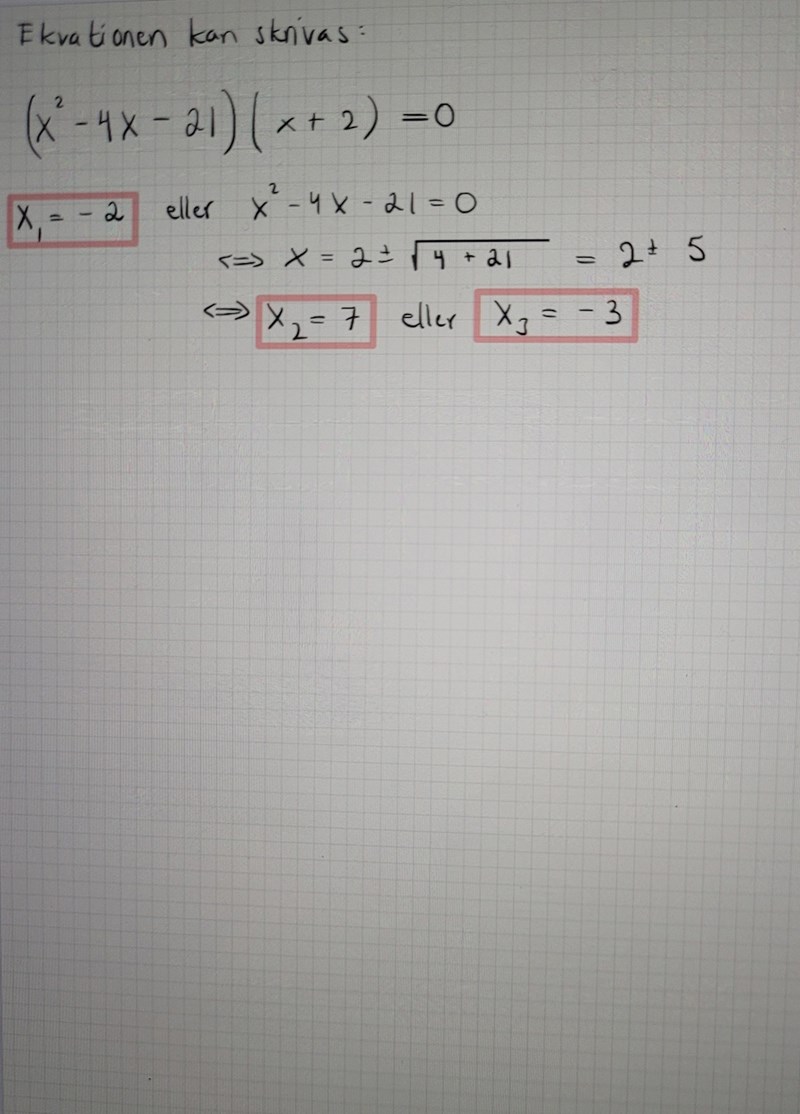 Ekvationen kan skrivas:
(x² - 4x - 21)(x + 2) = 0
x₁ = - 2 eller x² - 4x - 21 = 0
<=> x = 2 ± √(4 + 21) = 2 ± 5
<=> x₂ = 7 eller x₃ = - 3